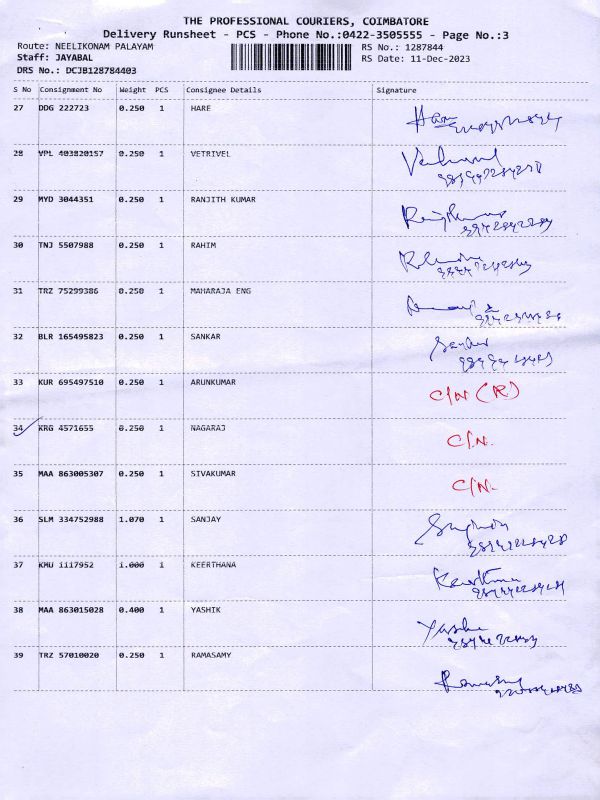 THE PROFESSIONAL COURIERS, COIMBATORE
Delivery Runsheet - PCS - Phone No.:0422-3505555 - Page No.:3
Route: NEELIKONAM PALAYAM RS No.: 1287844
Staff: JAYABAL RS Date: 11-Dec-2023
DRS No.: DCJB128784403
S No Consignment No Weight PCS Consignee Details Signature
27 DDG 222723 0.250 1 HARE
28 VPL 403820157 0.250 1 VETRIVEL
29 MYD 3044351 0.250 1 RANJITH KUMAR
30 TNJ 5507988 0.250 1 RAHIM
31 TRZ 75299386 0.250 1 MAHARAJA ENG
32 BLR 165495823 0.250 1 SANKAR
33 KUR 695497510 0.250 1 ARUNKUMAR C/N (R)
34 KRG 4571655 0.250 1 NAGARAJ C/N.
35 MAA 863005307 0.250 1 SIVAKUMAR C/N.
36 SLM 334752988 1.070 1 SANJAY
37 KMU 1117952 1.000 1 KEERTHANA
38 MAA 863015028 0.400 1 YASHIK
39 TRZ 57010020 0.250 1 RAMASAMY